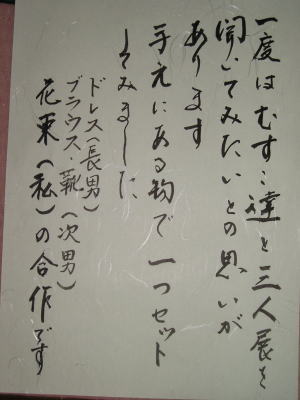 一度はむすこ達と三人展を
聞いてみたいとの思いが
あります
手元にある物で一つセット
してみました
ドレス(長男)
ブラウス・靴(次男)
花束(私)の合作です